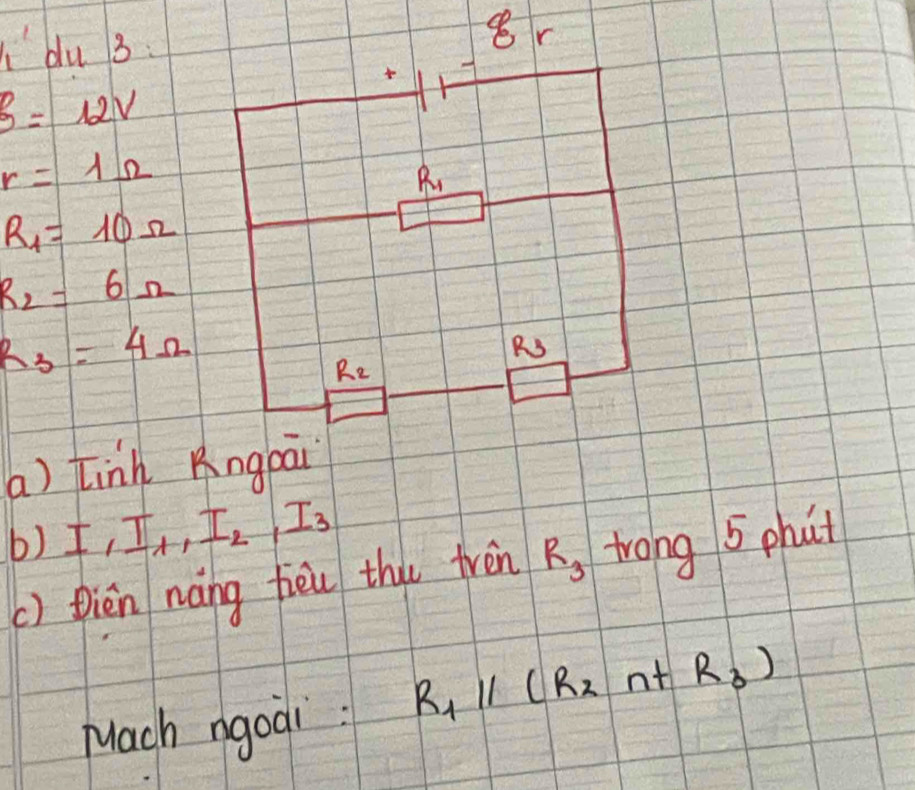 dụ 3:
+ - ℰ r
ℰ = 12V
r = 1Ω
R₁
R₁ = 10Ω
R₂ = 6Ω
R₃ = 4Ω
R₂ R₃
a) Tính Rngoài
b) I, I₁, I₂, I₃
c) Điện năng tiêu thụ trên R₃ trong 5 phút
Mạch ngoài: R₁ // (R₂ nt R₃)